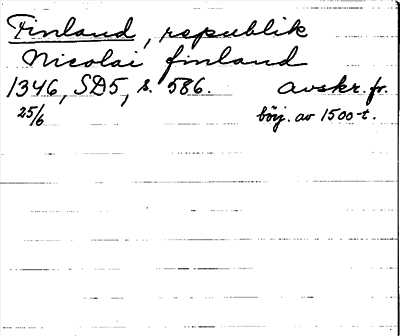 Finland, republik
Nicolai finland
1346, SD5, s. 586. avskr. fr.
25/6 börj. av 1500-t.